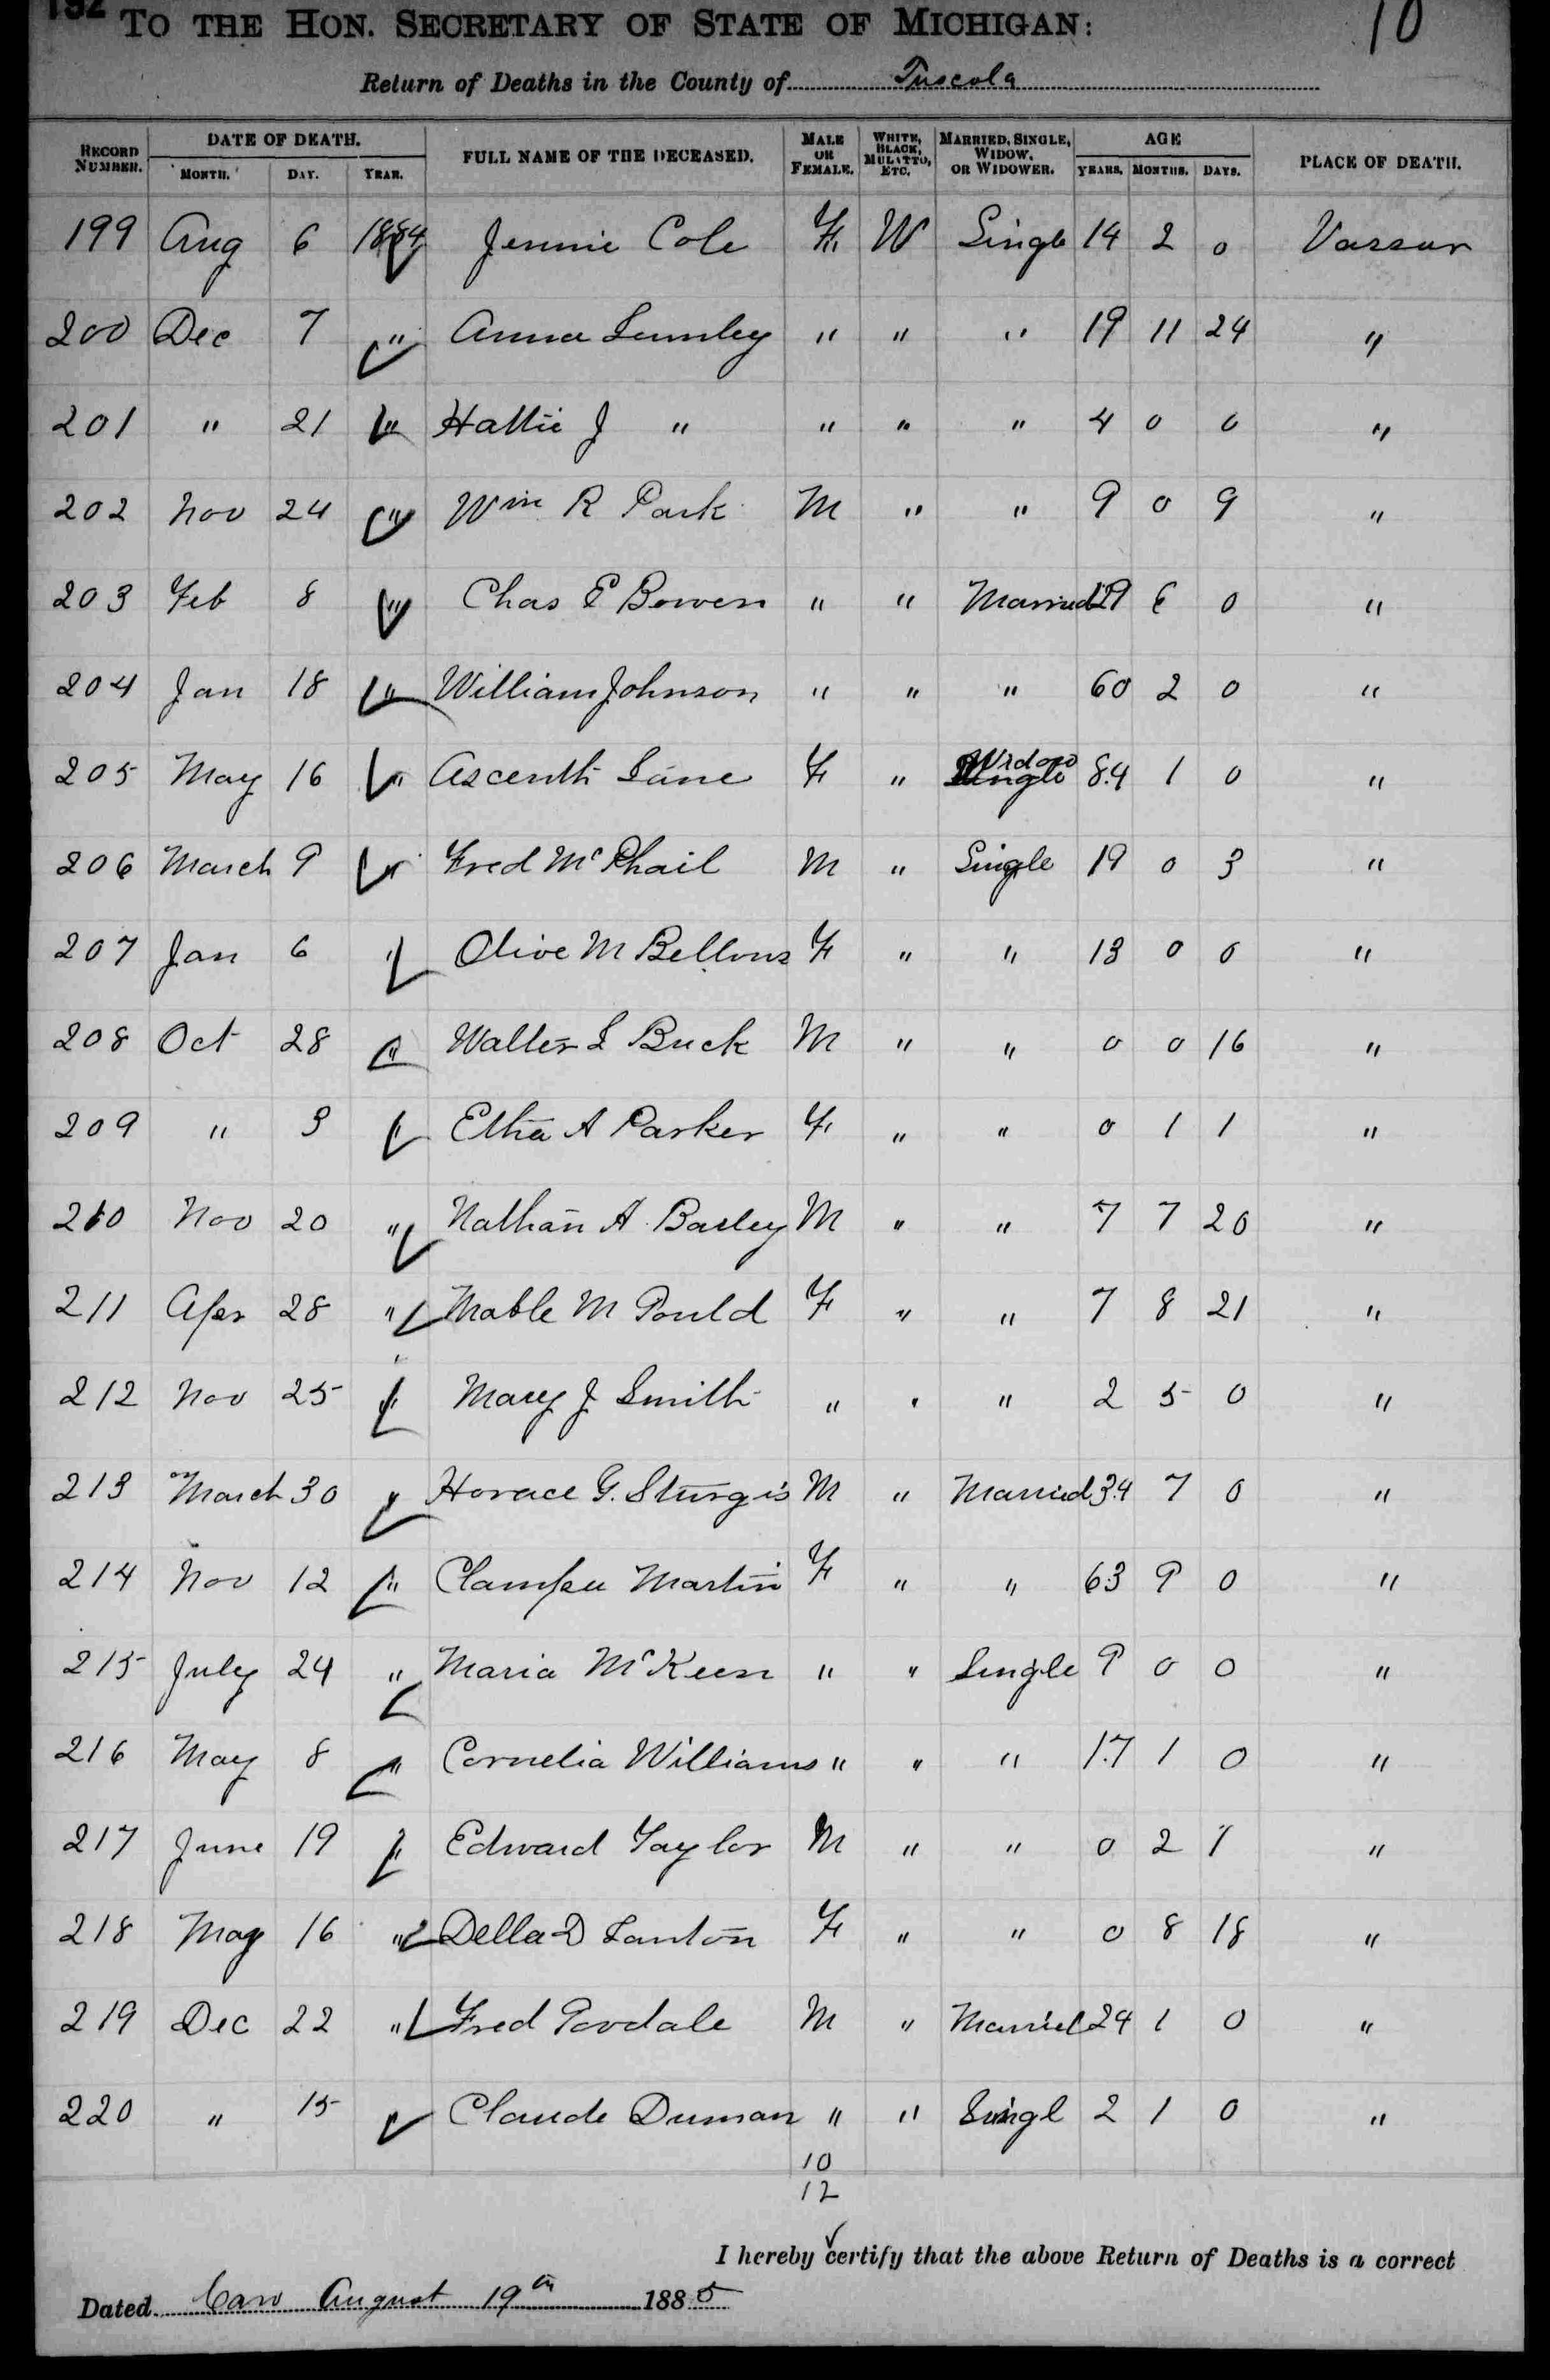 192
TO THE HON. SECRETARY OF STATE OF MICHIGAN:
10
Return of Deaths in the County of Tuscola
RECORD NUMBER. DATE OF DEATH. MONTH. DAY. YEAR. FULL NAME OF THE DECEASED. MALE OR FEMALE. WHITE, BLACK, MULATTO, ETC. MARRIED, SINGLE, WIDOW, OR WIDOWER. AGE YEARS. MONTHS. DAYS. PLACE OF DEATH.
199 Aug 6 1884 Jennie Cole F. W Single 14 2 0 Vassar
200 Dec 7 " Anna Lumley " " " 19 11 24 "
201 " 21 " Hattie J " " " " 4 0 0 "
202 Nov 24 " Wm R Park M " " 9 0 9 "
203 Feb 8 " Chas E Bowen " " Married 29 6 0 "
204 Jan 18 " William Johnson " " " 60 2 0 "
205 May 16 " Ascenth Lane F " Widow 84 1 0 "
206 March 9 " Fred McPhail M " Single 19 0 3 "
207 Jan 6 " Olive M Bellows F " " 13 0 0 "
208 Oct 28 " Walter L Buck M " " 0 0 16 "
209 " 3 " Etha A Parker F " " 0 1 1 "
210 Nov 20 " Nathan A Barley M " " 7 7 20 "
211 Apr 28 " Mable M Gould F " " 7 8 21 "
212 Nov 25 " Mary J Smith " " " 2 5 0 "
213 March 30 " Horace G. Sturgis M " Married 34 7 0 "
214 Nov 12 " Martin F " " 63 9 0 "
215 July 24 " Maria McKeen " " Single 9 0 0 "
216 May 8 " Cornelia Williams " " " 17 1 0 "
217 June 19 " Edward Taylor M " " 0 2 1 "
218 May 16 " Della D Lanton F " " 0 8 18 "
219 Dec 22 " Fred M " Married 24 1 0 "
220 " 15 " Claude Duman " " Singl 2 1 0 "
10
12
I hereby certify that the above Return of Deaths is a correct
Dated Caro August 19th 1885